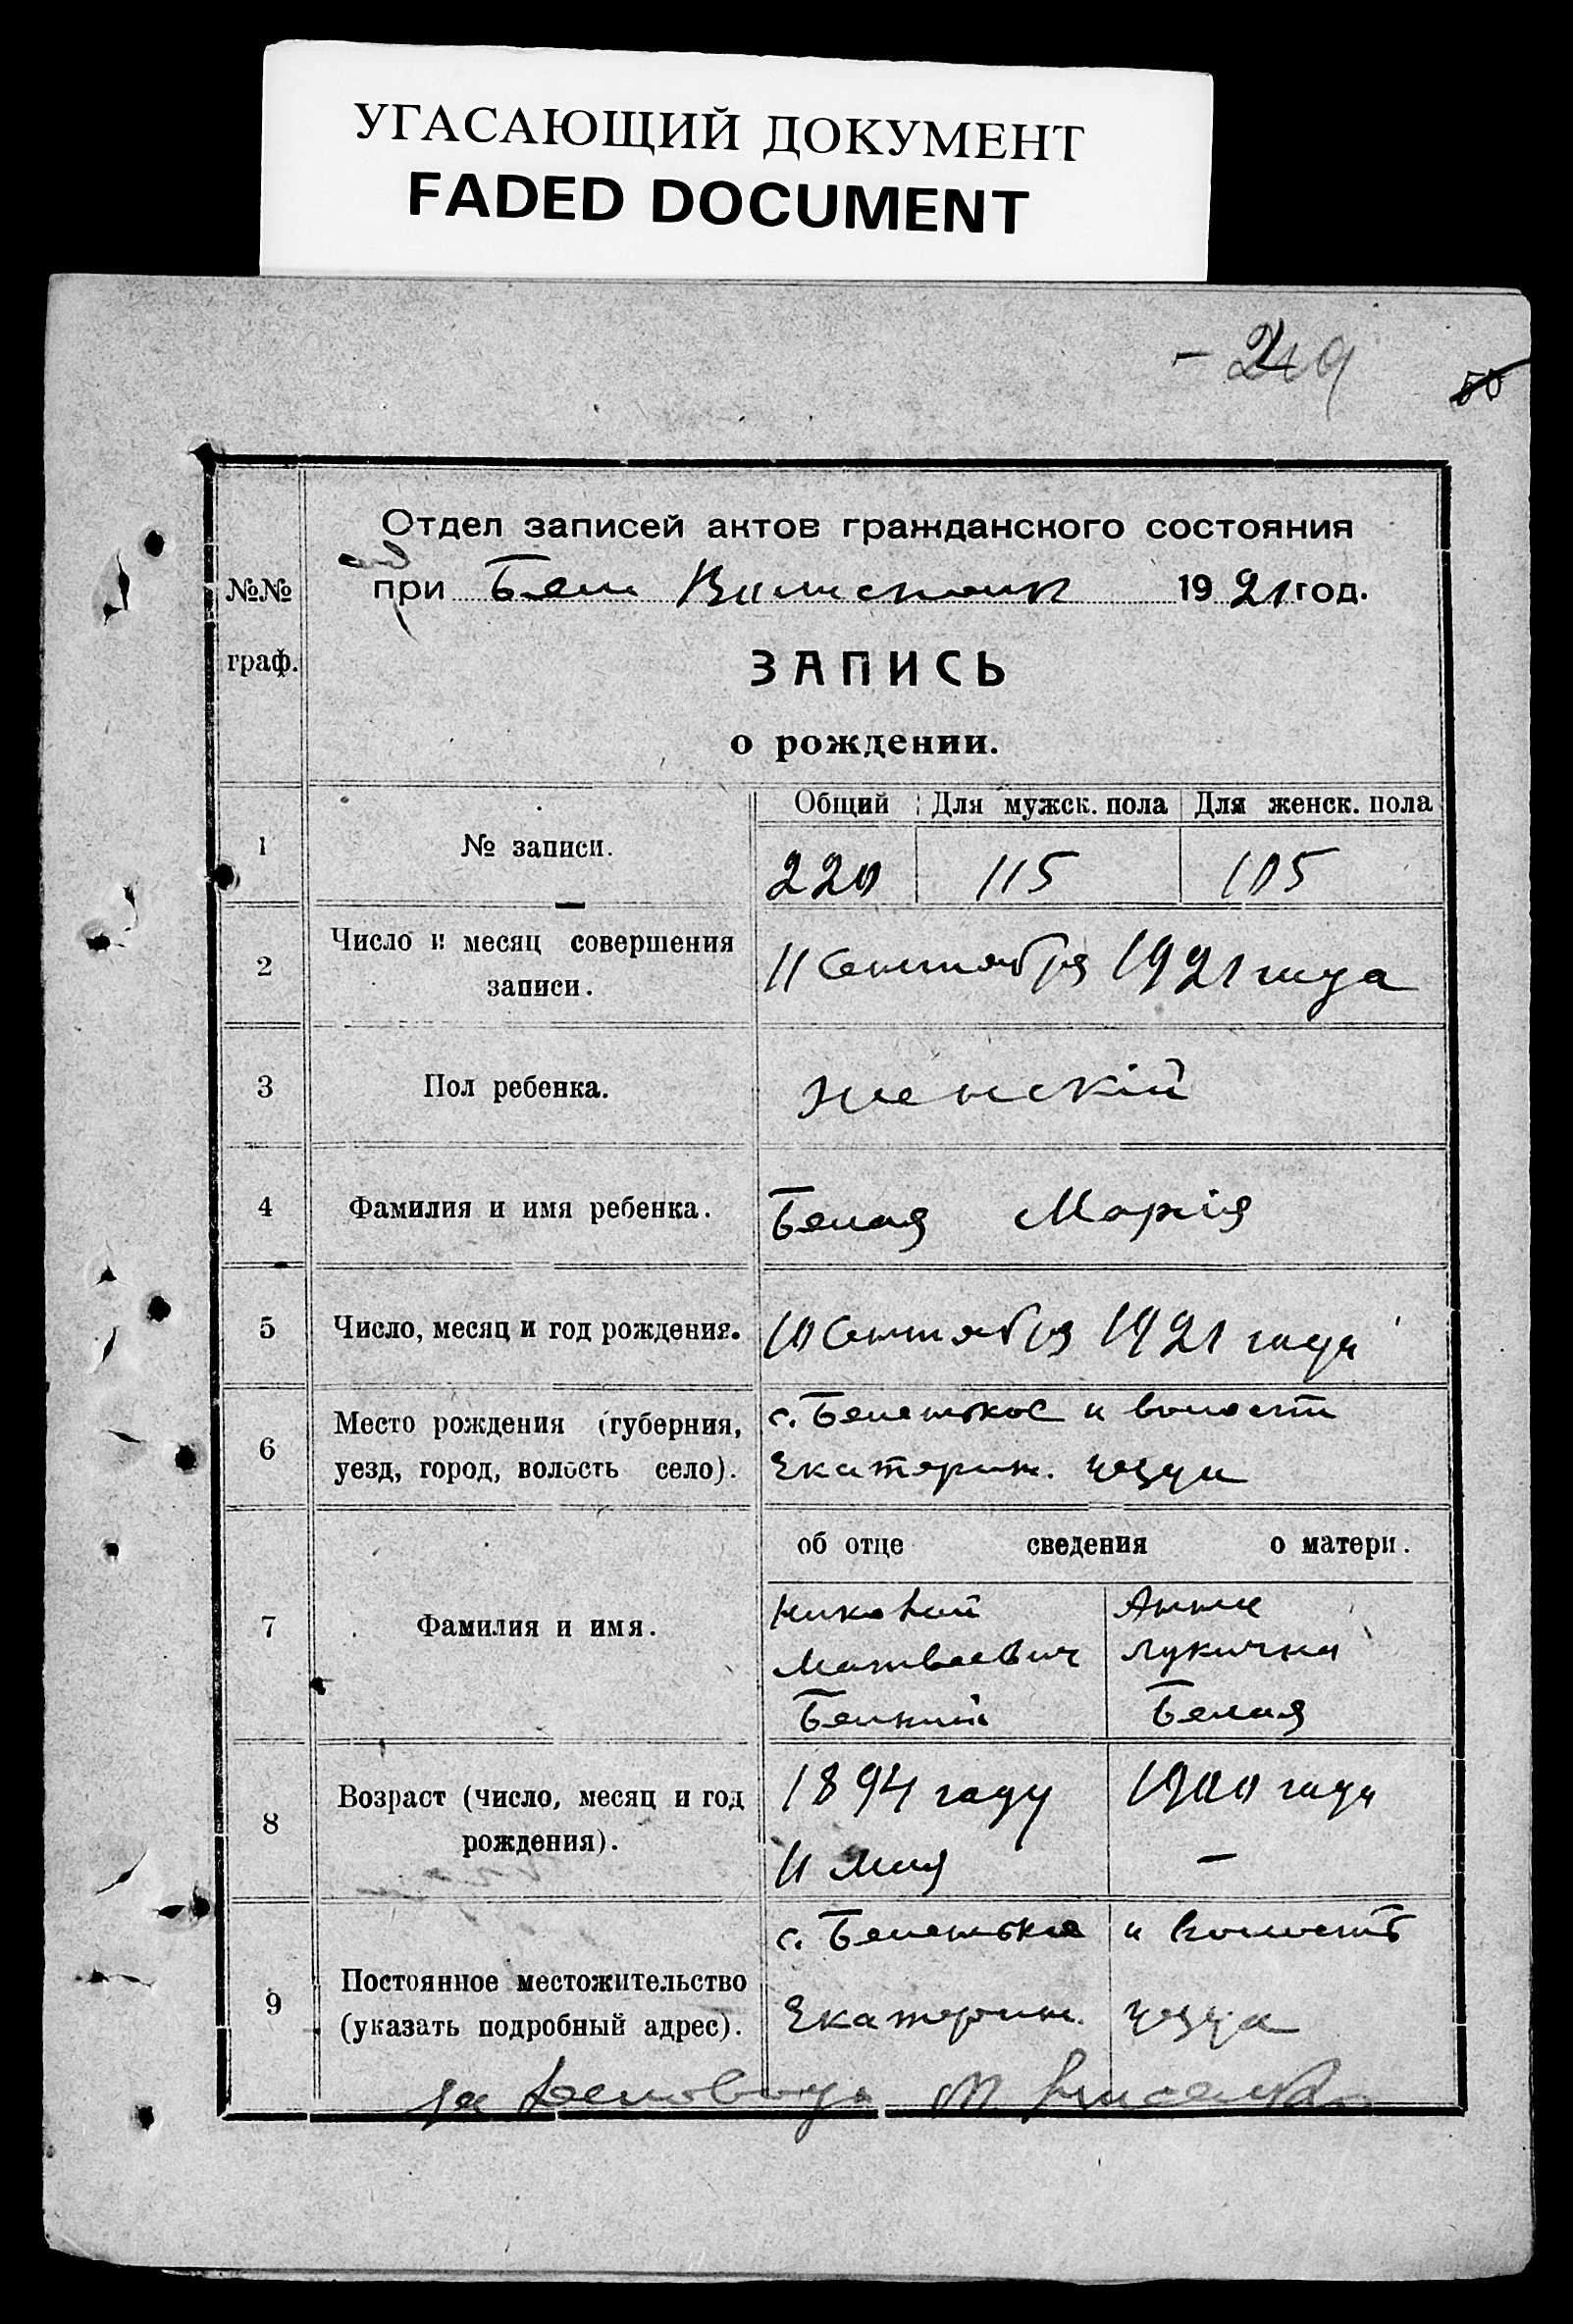 УГАСАЮЩИЙ ДОКУМЕНТ
FADED DOCUMENT
50
№№ граф.
Отдел записей актов гражданского состояния
при 1921 год.
ЗАПИСЬ
о рождении.
Общий Для мужск. пола Для женск. пола
1 № записи. 220 115 105
2 Число и месяц совершения
записи.
11 Сентября 1921 года
3 Пол ребенка. женскій
4 Фамилия и имя ребенка. Белая Марія
5 Число, месяц и год рождения. 10 Сентября 1921 года
6 Место рождения (губерния,
уезд, город, волость село).
с. Беленькое и волости
Екатерин. уезда
об отце сведения о матери.
7 Фамилия и имя.
Николай Анна
Матвеевич Лукична
Белая
8 Возраст (число, месяц и год
рождения).
1894 году 1900 года
11 мая —
9 Постоянное местожительство
(указать подробный адрес).
с. Беленькое и волость
Екатерин. уезда